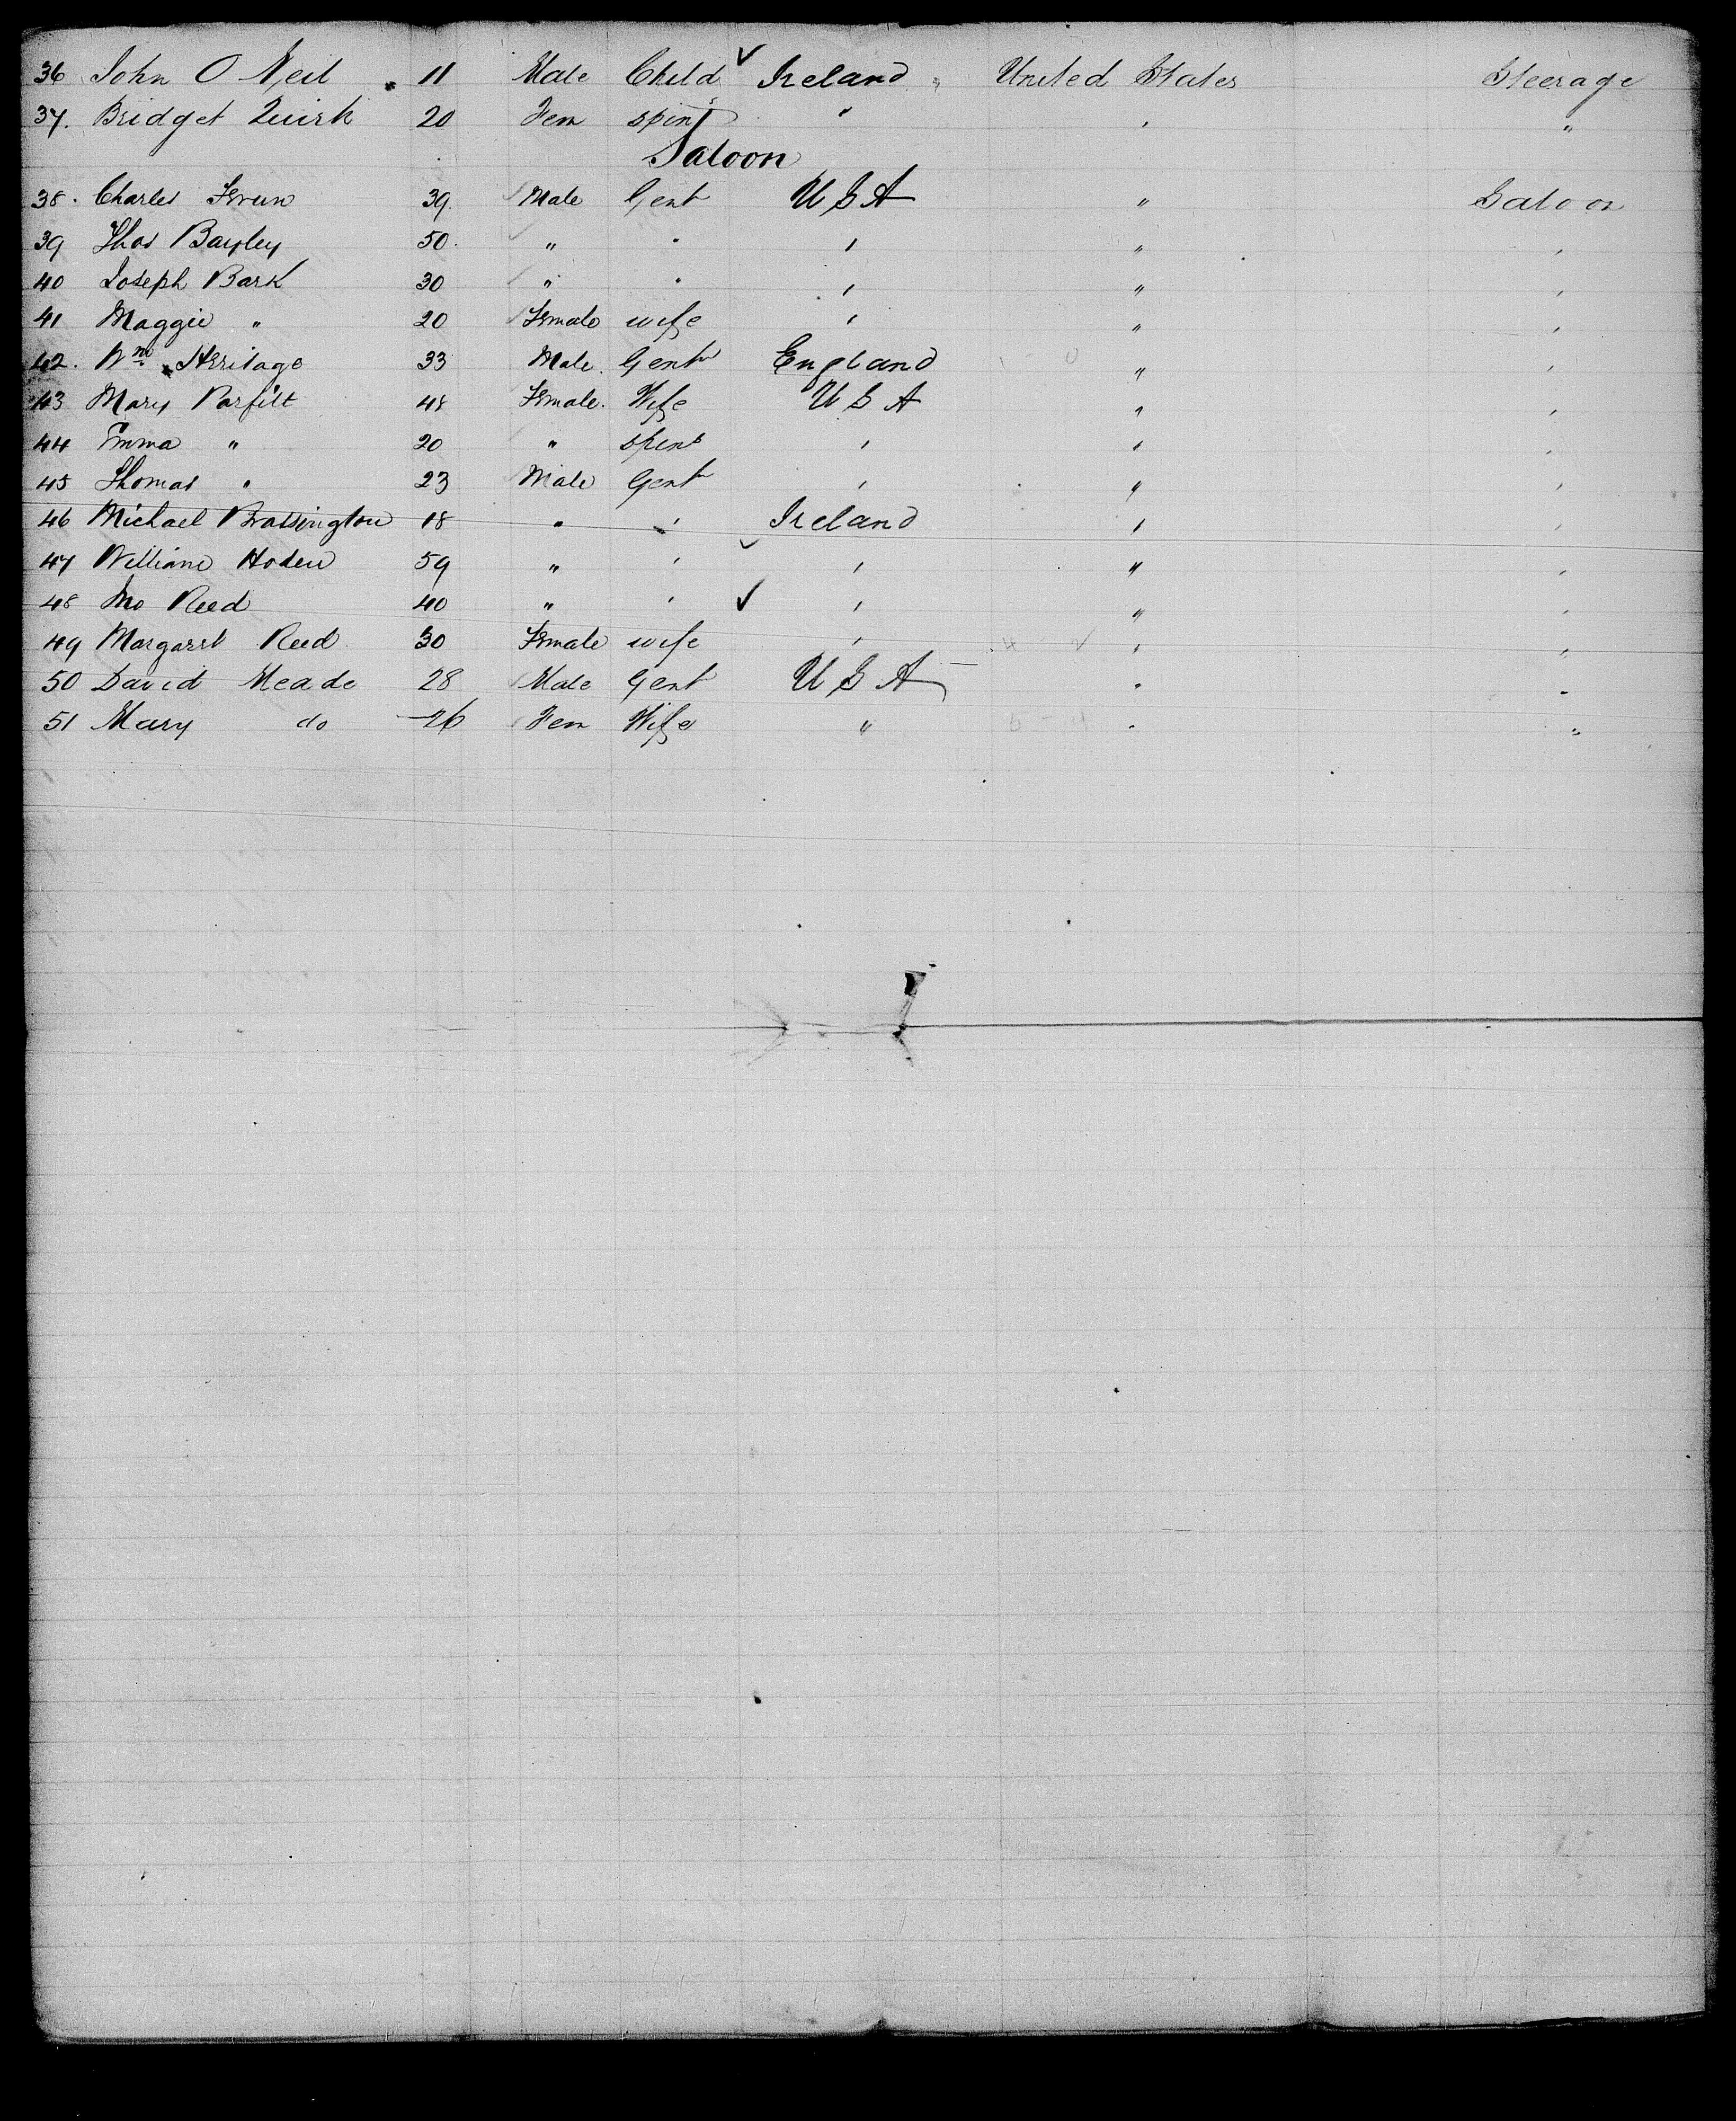 36 John O Neil 11 Male Child Ireland " United States Steerage
37. Bridget Quirk 20 Fem spins " " "
Saloon
38. Charles 39. Male Gent U S A " Saloon
39 Thos Bayley 50. " " " " "
40 Joseph Bark 30 " " " " "
41 Maggie " 20 Female wife " " "
42. Wm Heritage 33 Male. Gent England " "
43 Mary Parfitt 48 Female. Wife U S A " "
44 Emma " 20 " spins " " "
45 Thomas " 23 Male Gent " " "
46 Michael Brassington 18 " " Ireland " "
47 William Hoden 59 " " " " "
48 Jno Reed 40 " " " " "
49 Margaret Reed 30 Female wife " " "
50 David Meade 28 Male Gent U S A " "
51 Mary do 26 Fem Wife " " "